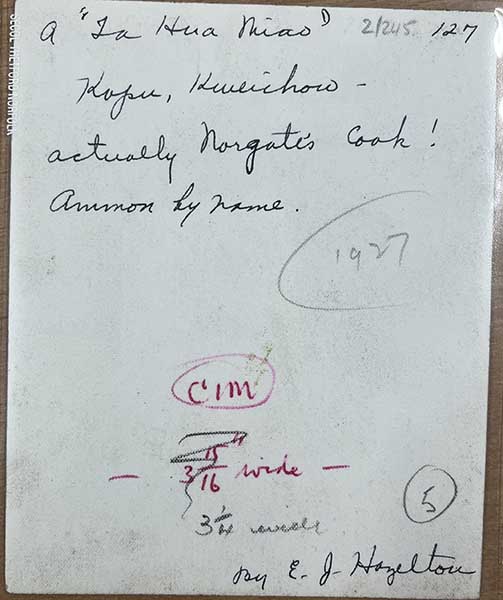 A "Ta Hua Miao" D 2/245 127
Kopu, Kweichow -
actually Norgate's Cook!
Ammon by name.
1927
CIM
3 15/16" wide
3 1/4 wide
5
By E. J. Hazelton